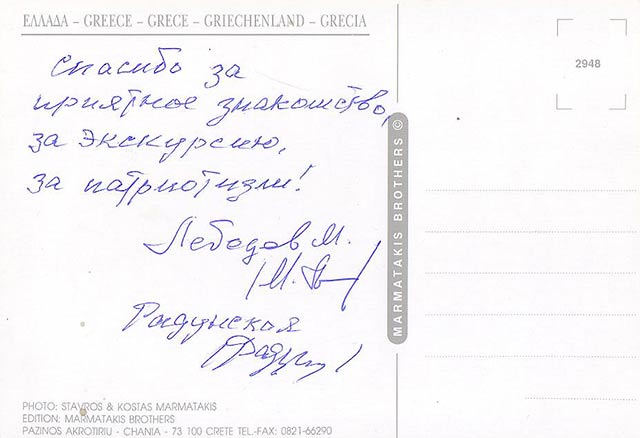 ΕΛΛΑΔΑ – GREECE – GRECE – GRIECHENLAND – GRECIA
Спасибо за
приятное знакомство,
за экскурсию,
за патриотизм!
Лебодов М.
Радунская
2948
MARMATAKIS BROTHERS ©
PHOTO: STAVROS & KOSTAS MARMATAKIS
EDITION: MARMATAKIS BROTHERS
PAZINOS AKROTIRIU - CHANIA - 73 100 CRETE TEL.-FAX: 0821-66290